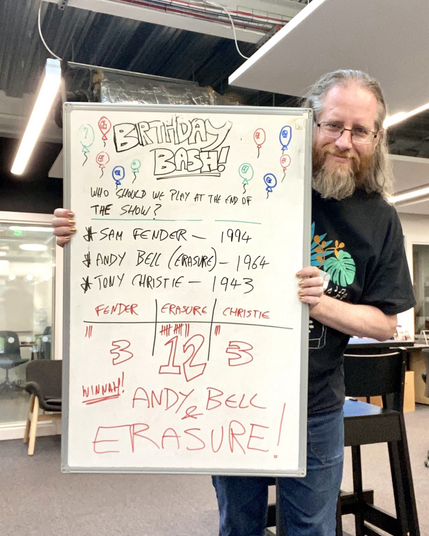 BIRTHDAY
BASH!
WHO SHOULD WE PLAY AT THE END OF
THE SHOW?
* SAM FENDER – 1994
* ANDY BELL (ERASURE) – 1964
* TONY CHRISTIE – 1943
FENDER ERASURE CHRISTIE
3 12 3
WINNAH!
ANDY BELL
&
ERASURE!